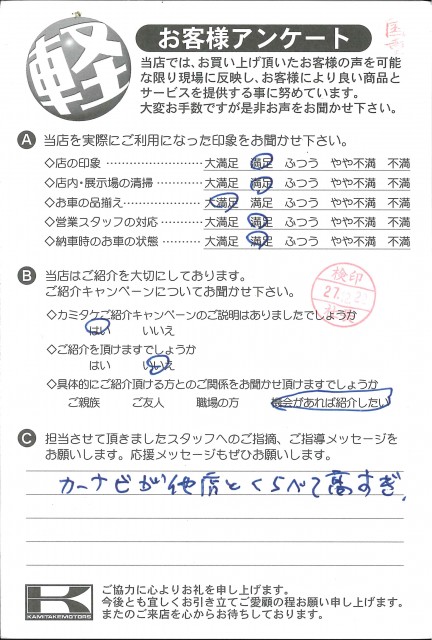 軽
お客様アンケート
当店では、お買い上げ頂いたお客様の声を可能
な限り現場に反映し、お客様により良い商品と
サービスを提供する事に努めています。
大変お手数ですが是非お声をお聞かせ下さい。
A 当店を実際にご利用になった印象をお聞かせ下さい。
◇店の印象 ………………… 大満足 満足 ふつう やや不満 不満
◇店内・展示場の清掃 ………… 大満足 満足 ふつう やや不満 不満
◇お車の品揃え ……………… 大満足 満足 ふつう やや不満 不満
◇営業スタッフの対応 ………… 大満足 満足 ふつう やや不満 不満
◇納車時のお車の状態 ………… 大満足 満足 ふつう やや不満 不満
B 当店はご紹介を大切にしております。
ご紹介キャンペーンについてお聞かせ下さい。
検印
◇カミタケご紹介キャンペーンのご説明はありましたでしょうか
はい いいえ
◇ご紹介を頂けますでしょうか
はい いいえ
◇具体的にご紹介頂ける方とのご関係をお聞かせ頂けますでしょうか
ご親族 ご友人 職場の方 機会があれば紹介したい
C 担当させて頂きましたスタッフへのご指摘、ご指導メッセージを
お願いします。応援メッセージもぜひお願いします。
カーナビが他店とくらべて高すぎ、
K
KAMITAKEMOTORS
ご協力に心よりお礼を申し上げます。
今後とも宜しくお引き立てご愛顧の程お願い申し上げます。
またのご来店を心からお待ちしております。